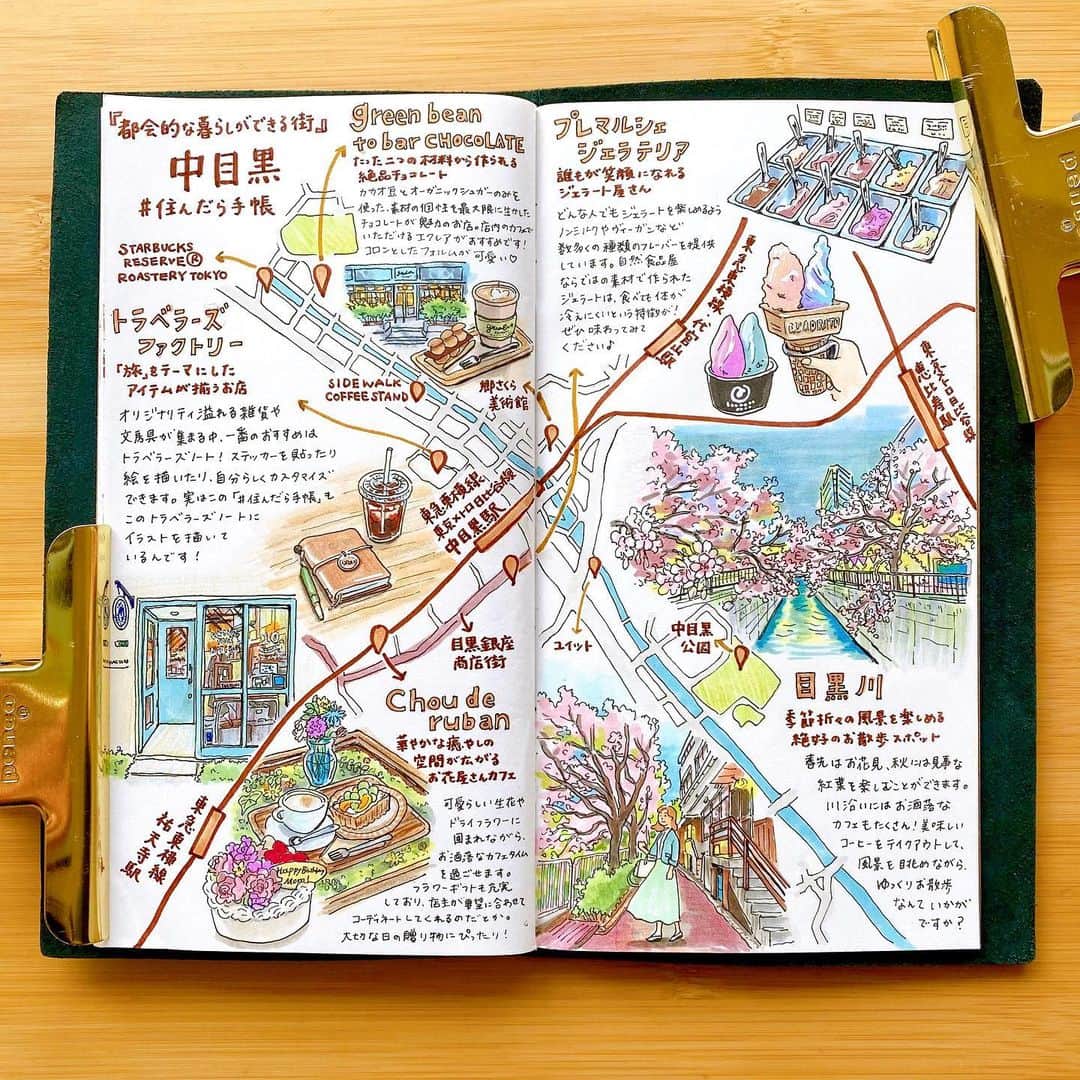 『都会的な暮らしができる街』
中目黒
#住んだら手帳
STARBUCKS
RESERVE®
ROASTERY TOKYO
green bean
to bar CHOCOLATE
たった二つの材料から作られる
絶品チョコレート
カカオ豆とオーガニックシュガーのみを
使った、素材の個性を最大限に生かした
チョコレートが魅力のお店。店内のカフェで
いただけるエクレアがおすすめです!
コロンとしたフォルムが可愛い♡
トラベラーズ
ファクトリー
「旅」をテーマにした
アイテムが揃うお店
オリジナリティ溢れる雑貨や
文房具が集まる中、一番のおすすめは
トラベラーズノート!ステッカーを貼ったり
絵を描いたり、自分らしくカスタマイズ
できます。実はこの「#住んだら手帳」も
このトラベラーズノートに
イラストを描いて
いるんです!
SIDEWALK
COFFEE STAND
郷さくら
美術館
東急東横線
東京メトロ日比谷線
中目黒駅
目黒銀座
商店街
Chou de
ruban
華やかな癒やしの
空間が広がる
お花屋さんカフェ
可愛らしい生花や
ドライフラワーに
囲まれながら、
お洒落なカフェタイム
を過ごせます。
フラワーギフトも充実
しており、店主が要望に合わせて
コーディネートしてくれるのだとか。
大切な日の贈り物にぴったり!
Happy Birthday
東急東横線
祐天寺駅
プレマルシェ
ジェラテリア
誰もが笑顔になれる
ジェラート屋さん
どんな人でもジェラートを楽しめるよう
ノンミルクやヴィーガンなど
数多くの種類のフレーバーを提供
しています。自然食品屋
ならではの素材で作られた
ジェラートは、食べても体が
冷えにくいという特徴が!
ぜひ味わってみて
ください♪
東急東横線 代官山駅
東京メトロ日比谷線
恵比寿駅
ユイット
中目黒
公園
目黒川
季節折々の風景を楽しめる
絶好のお散歩スポット
春先はお花見、秋には見事な
紅葉を楽しむことができます。
川沿いにはお洒落な
カフェもたくさん!美味しい
コーヒーをテイクアウトして、
風景を眺めながら、
ゆっくりお散歩
なんていかが
ですか?
penco®
penco®